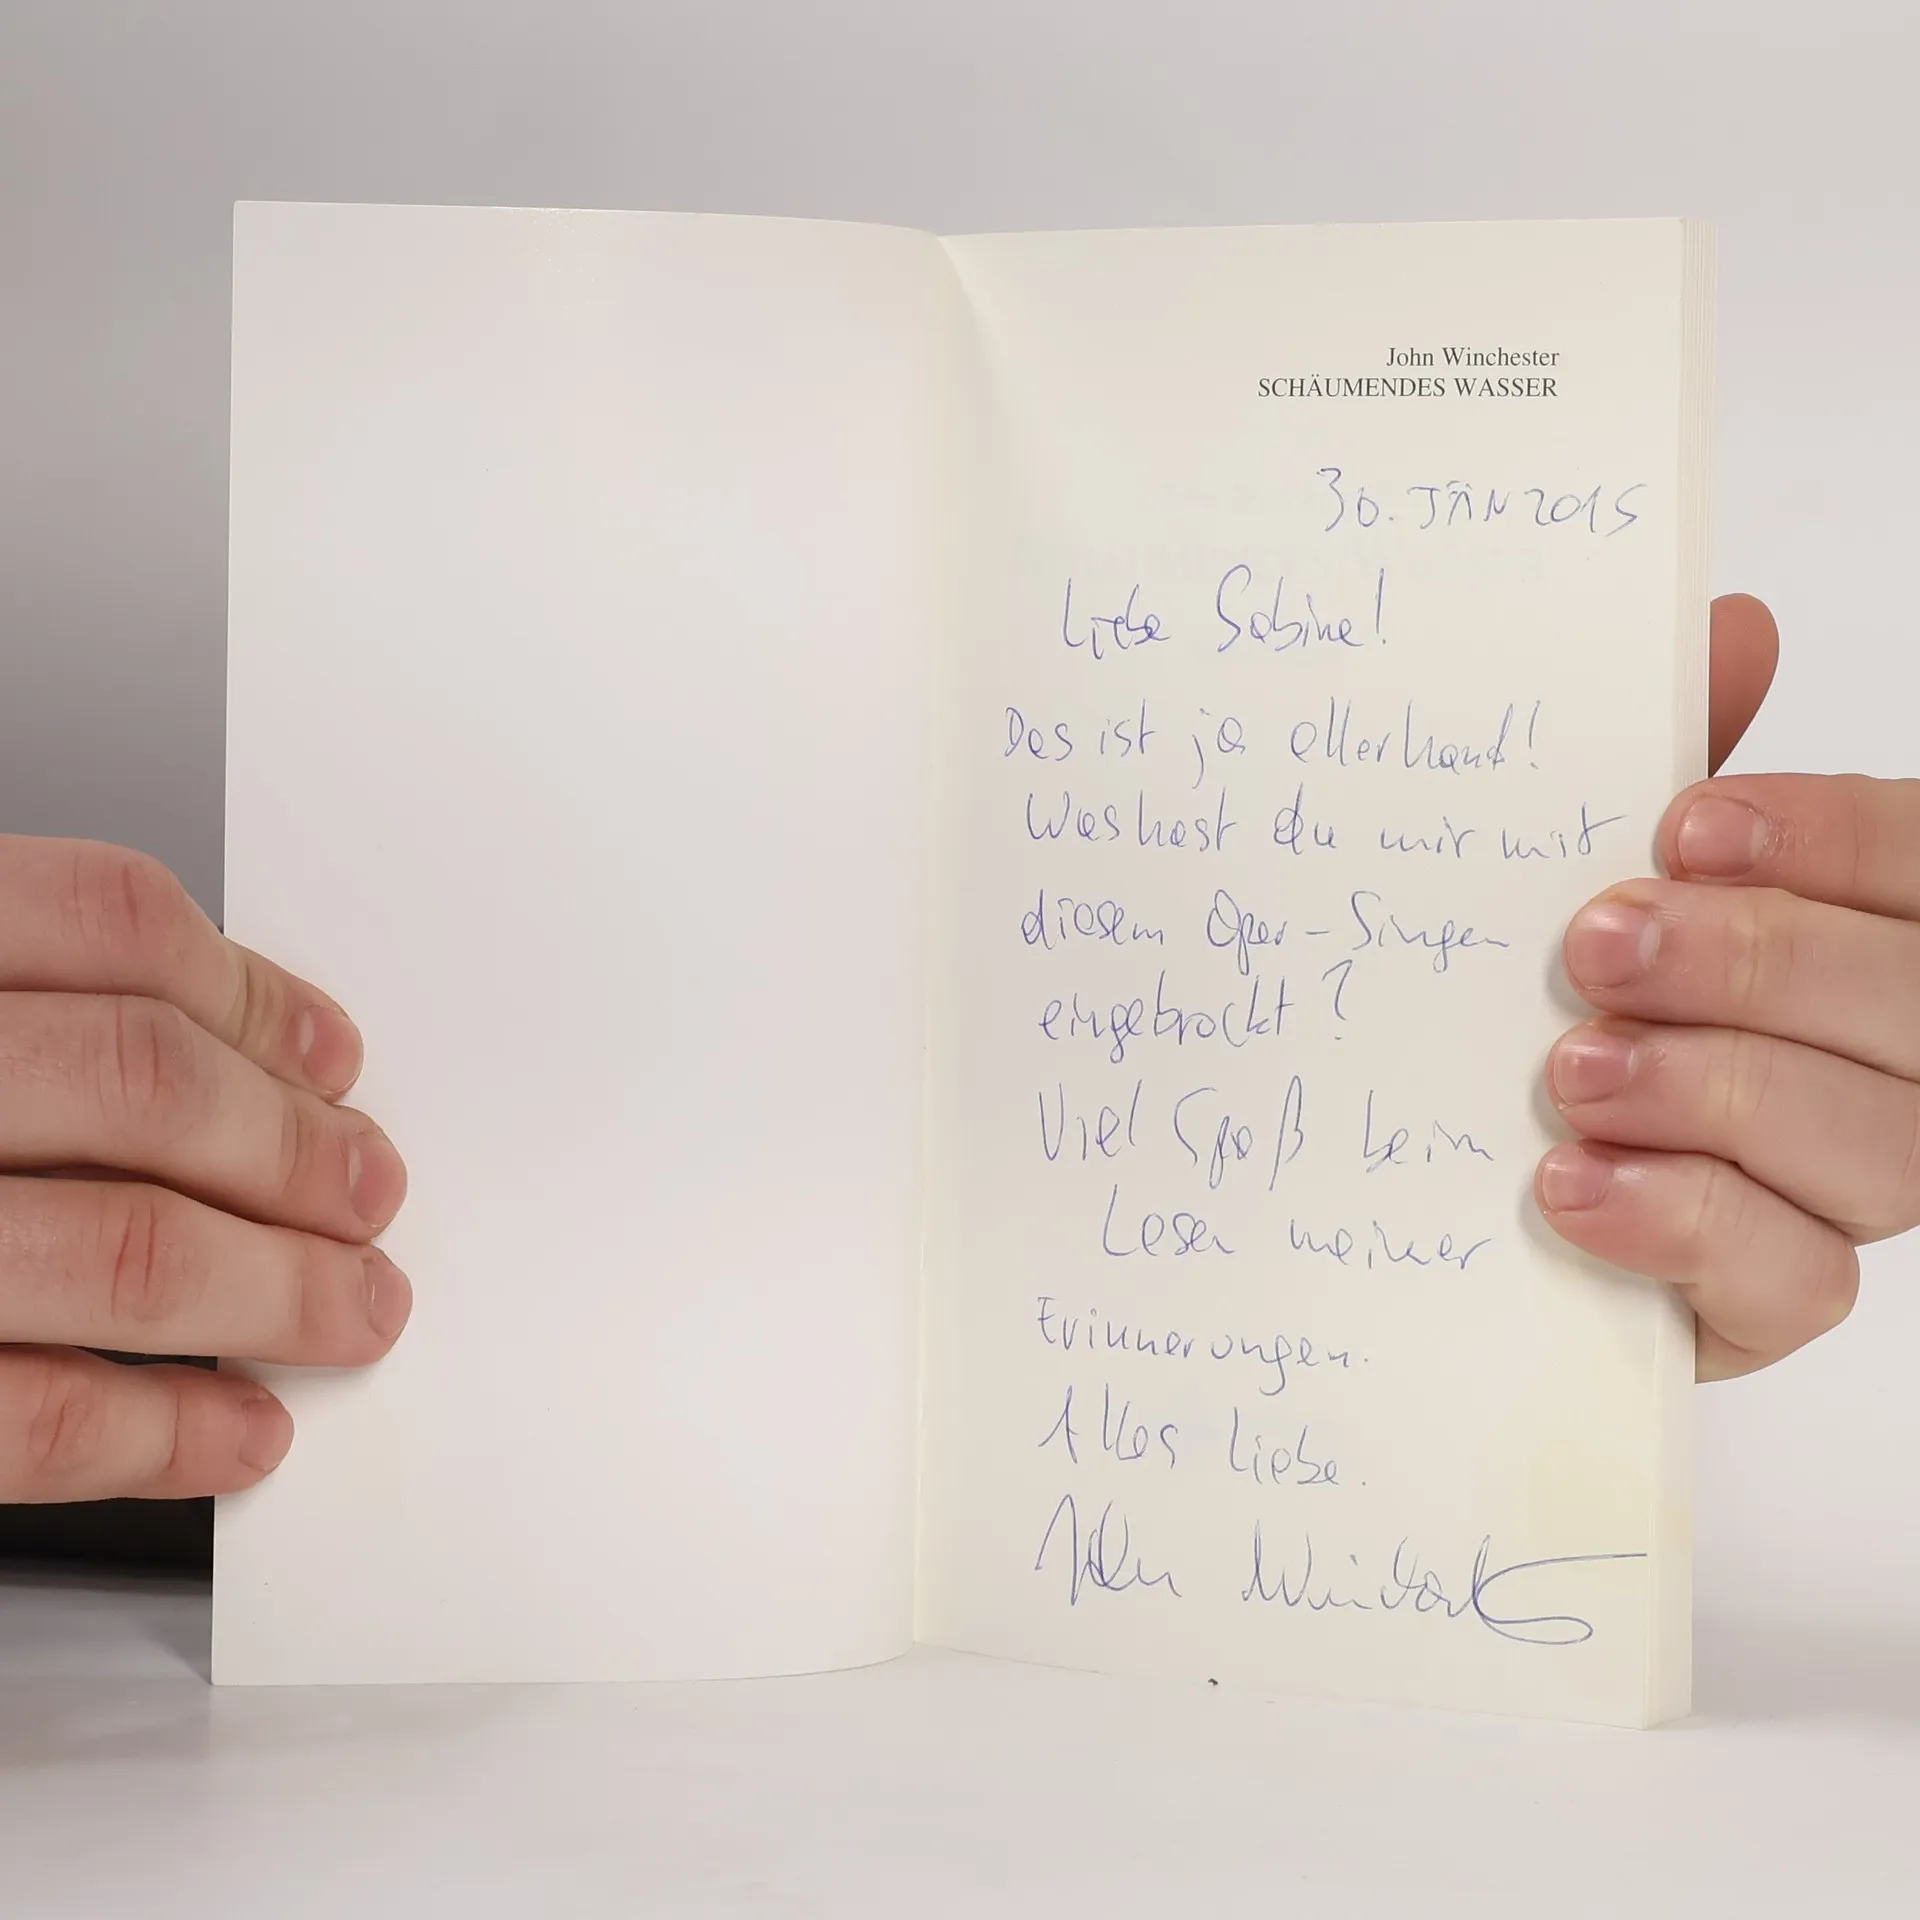 John Winchester
SCHÄUMENDES WASSER
30. JÄN 2015
Liebe Sabine!
Das ist ja allerhand!
Was hast du mir mit
diesem Oper-Singen
eingebrockt?
Viel Spaß beim
Lesen meiner
Erinnerungen.
Alles Liebe.